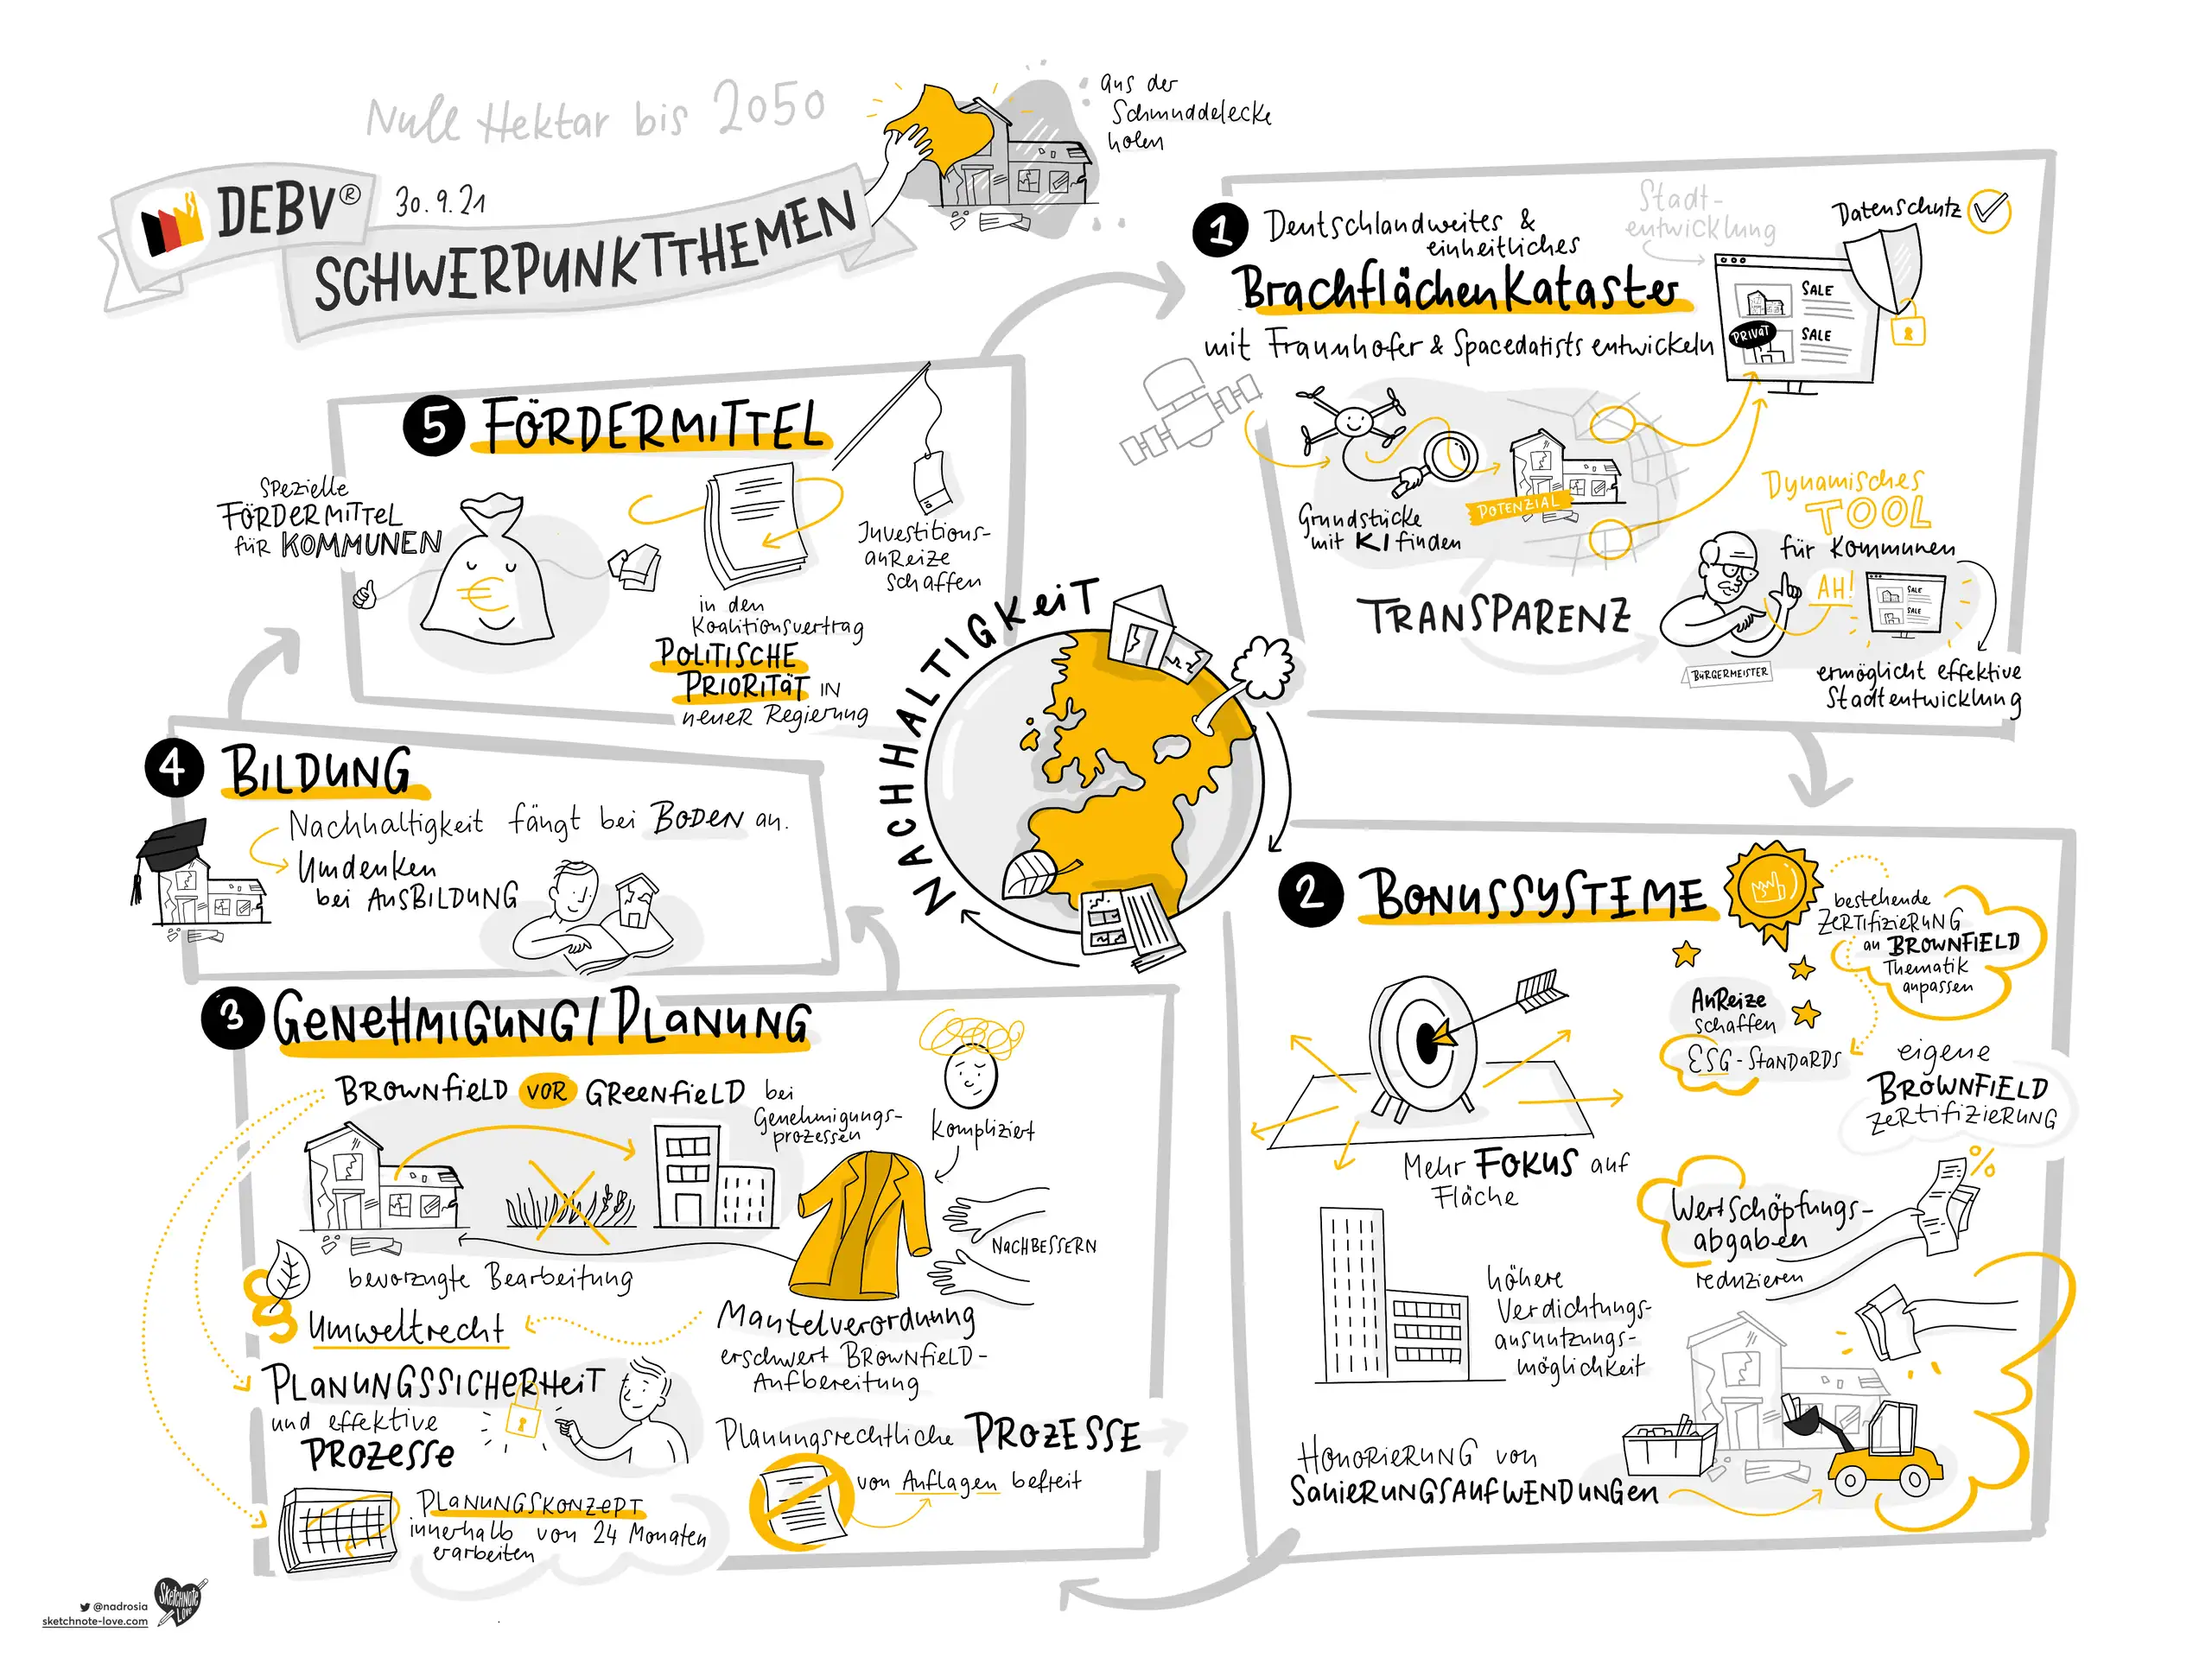 Null Hektar bis 2050
aus der
Schmuddelecke
holen
DEBV®
30.9.21
SCHWERPUNKTTHEMEN
1 Deutschlandweites &
einheitliches
Brachflächenkataster
mit Fraunhofer & Spacedatists entwickeln
Stadt-
entwicklung
Datenschutz
SALE
PRIVAT
SALE
Grundstücke
mit KI finden
POTENZIAL
Dynamisches
TOOL
für Kommunen
AH!
SALE
SALE
TRANSPARENZ
BÜRGERMEISTER
ermöglicht effektive
Stadtentwicklung
NACHHALTIGKEIT
2 BONUSSYSTEME
bestehende
ZERTIFIZIERUNG
an BROWNFIELD
Thematik
anpassen
AnReize
schaffen
ESG-STANDARDS
eigene
BROWNFIELD
ZERTIFIZIERUNG
Mehr FOKUS auf
Fläche
%
Wertschöpfungs-
abgaben
reduzieren
höhere
Verdichtungs-
ausnutzungs-
möglichkeit
HONORIERUNG von
SANIERUNGSAUFWENDUNGEN
3 GENEHMIGUNG/PLANUNG
BROWNFIELD VOR GREENFIELD bei
Genehmigungs-
prozessen
kompliziert
NACHBESSERN
bevorzugte Bearbeitung
§
Umweltrecht
Mantelverordnung
erschwert BROWNFIELD-
Aufbereitung
PLANUNGSSICHERHEIT
und effektive
PROZESSE
Planungsrechtliche PROZESSE
von Auflagen befreit
PLANUNGSKONZEPT
innerhalb von 24 Monaten
erarbeiten
4 BILDUNG
Nachhaltigkeit fängt bei BODEN an.
Umdenken
bei AUSBILDUNG
5 FÖRDERMITTEL
SPEZIELLE
FÖRDERMITTEL
für KOMMUNEN
€
in den
Koalitionsvertrag
POLITISCHE
PRIORITÄT IN
neueR Regierung
Investitions-
anReize
schaffen
@nadrosia
sketchnote-love.com
SKETCHNOTE
LOVE